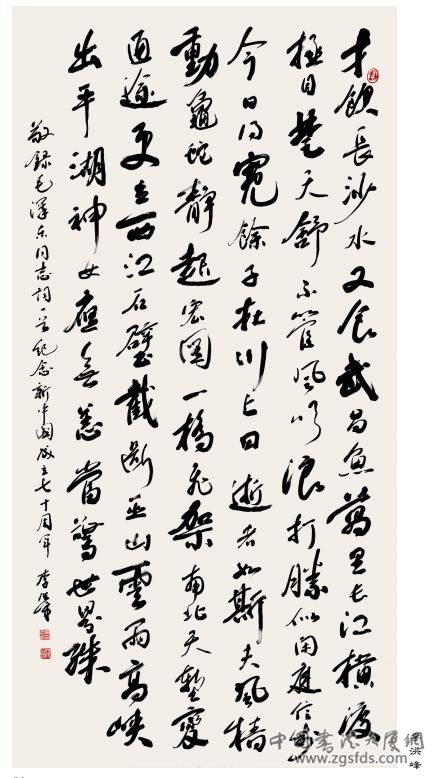 才飲長沙水又食武昌魚萬里长江橫渡
極目楚天舒不管風吹浪打勝似閑庭信步
今日得寬餘子在川上曰逝者如斯夫風檣
動龜蛇靜起宏圖一橋飛架南北天塹變
通途更立西江石壁截斷巫山雲雨高峽
出平湖神女應無恙當驚世界殊
敬録毛澤东同志詞一首紀念新中國成立七十周年 李洪峰
洪峰
中国书法大厦网
www.zgsfds.com